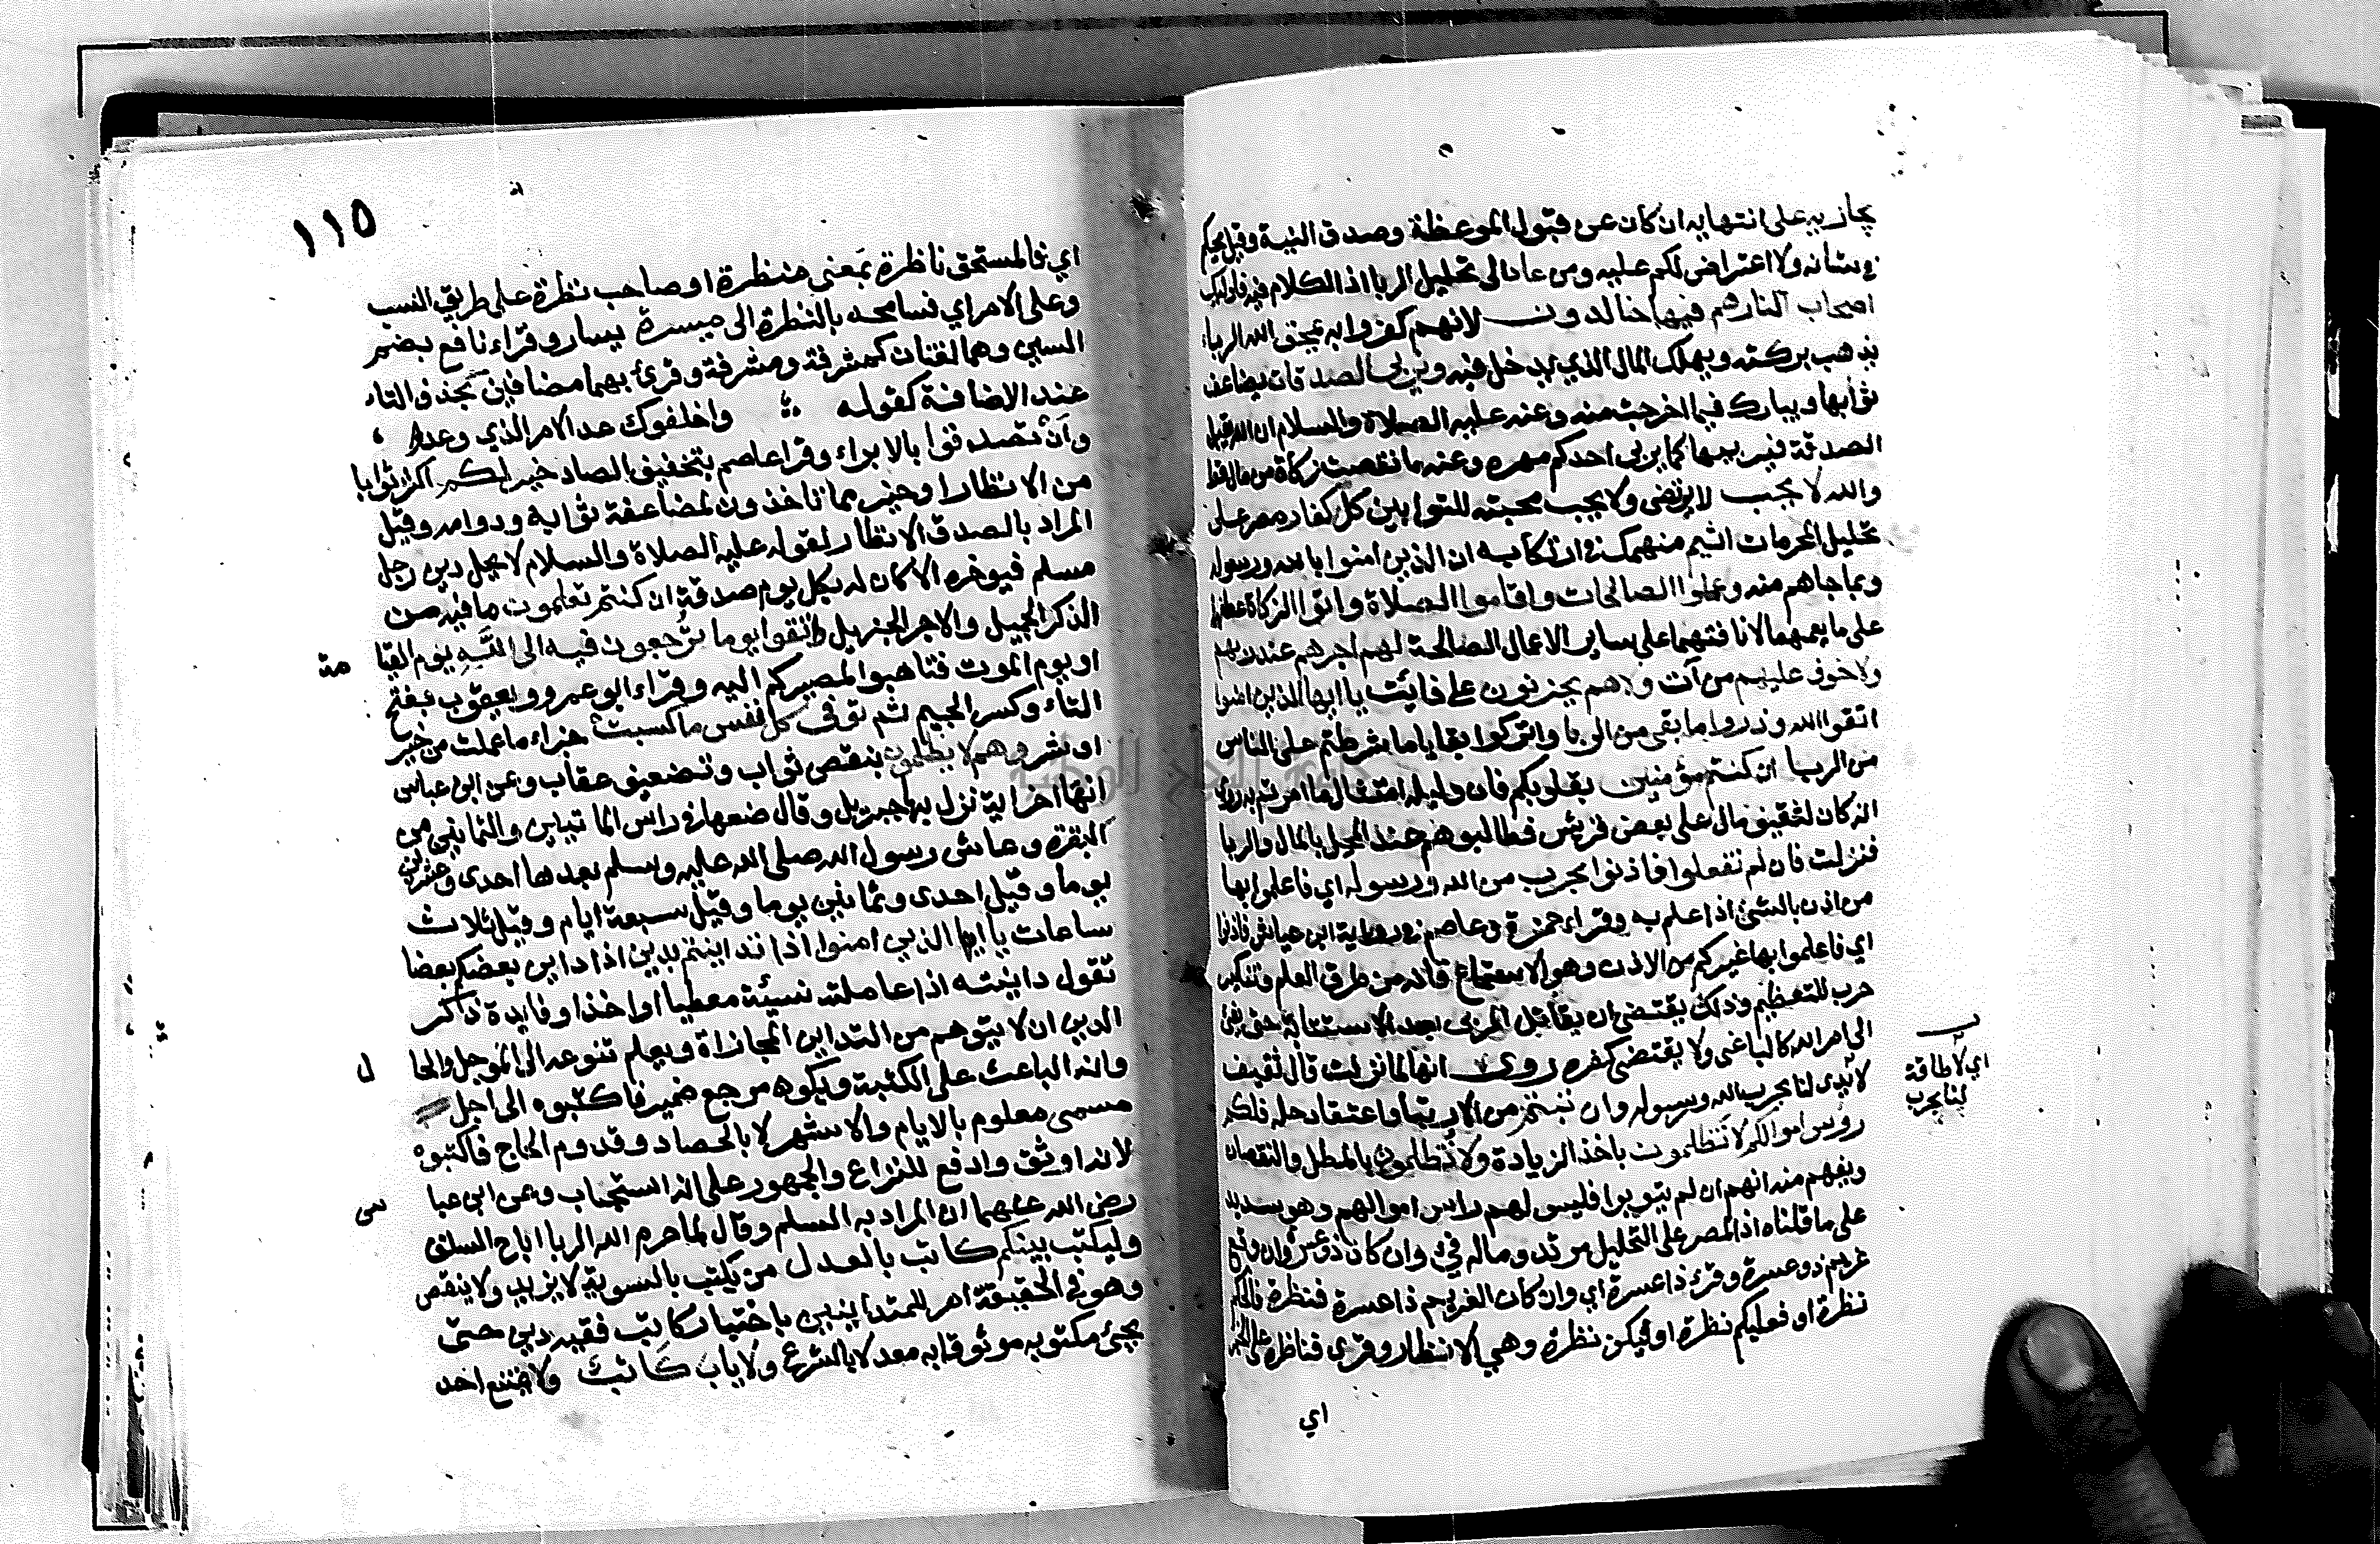 يجازيه على انتهايه ان كان عن قبول الموعظة وصدق النية وقيل يحكم
في شانه ولا اعتراض لكم عليه ومن عاد الى تحليل الربا اذ الكلام فيه فاوليك
اصحاب النار هم فيها خالدون لانهم كفروا به يمحق الله الربا
يذهب بركته ويهلك المال الذي يدخل فيه ويربي الصدقات يضاعف
ثوابها ويبارك فيما اخرجت منه وعنه عليه الصلاة والسلام ان الله يقبل
الصدقة فيربيها كما يربي احدكم مهره وعنه ما نقصت زكاة من مال قط
والله لا يحب لا يرتضى ولا يحب محبته للتوابين كل كفار مصر على
تحليل المحرمات اثيم منهمك في ارتكابه ان الذين امنوا بالله ورسوله
وبما جاهم منه وعملوا الصالحات واقاموا الصلاة واتوا الزكاة عطفهما
على ما يعمهما لانافتهما على ساير الاعمال الصالحة لهم اجرهم عند ربهم
ولا خوف عليهم من آت ولا هم يحزنون على فائت يا ايها الذين امنوا
اتقوا الله وذروا ما بقى من الربا واتركوا بقايا ما شرطتم على الناس
من الربا ان كنتم مؤمنين بقلوبكم فان دليله امتثال ما امرتم به روى
انه كان لثقيف مال على بعض قريش فطالبوهم عند المحل بالمال والربا
فنزلت فان لم تفعلوا فاذنوا بحرب من الله ورسوله اي فاعلموا بها
من اذن بالشئ اذا علم به وقراء حمزة وعاصم في رواية ابن عياش فاذنوا
اي فاعلموا بها غيركم من الاذن وهو الاستماع فانه من طرق العلم وتنكير
حرب للتعظيم وذلك يقتضى ان يقاتل المربى بعد الاستتابة حتى يفئ
الى امر الله كالباغى ولا يقتضى كفره روى انها لما نزلت قال ثقيف
لا يدى لنا بحرب الله ورسوله وان تبتم من الارتبا واعتقاد حله فلكم
رؤس اموالكم لا تظلمون باخذ الزيادة ولا تظلمون بالمطل والنقصان
ويفهم منه انهم ان لم يتوبوا فليس لهم راس اموالهم وهو سديد
على ما قلناه اذ المصر على التحليل مرتد وماله فئ وان كان ذو عسرة وان وقع
غريم ذو عسرة وقرئ ذا عسرة اي وان كان الغريم ذا عسرة فنظرة فالحكم
نظرة او فعليكم نظرة او فليكن نظرة وهي الانتظار وقرئ فناظره على الخبر
اي
اي لا طاقة
لنا بحرب
١١٥
اي فالمستحق ناظرة بمعنى منتظرة او صاحب نظرة على طريق النسب
وعلى الامر اي فسامحه بالنظرة الى ميسرة يسار وقراء نافع بضم
السين وهما لغتان كمشرقة ومشرقة وقرئ بهما مضافين بحذف التاء
عند الاضافة كقوله واخلفوك عد الامر الذي وعدوا
وان تصدقوا بالابراء وقرا عاصم بتخفيف الصاد خير لكم اكثر ثوابا
من الانظار او خير مما تاخذون لمضاعفة ثوابه ودوامه وقيل
المراد بالصدق الانظار لقوله عليه الصلاة والسلام لا يحل دين رجل
مسلم فيوخره الا كان له بكل يوم صدقة ان كنتم تعلمون ما فيه من
الذكر الجميل والاجر الجزيل واتقوا يوما ترجعون فيه الى الله يوم القيا
مة
او يوم الموت فتاهبوا لمصيركم اليه وقراء ابو عمرو ويعقوب بفتح
التاء وكسر الجيم ثم توفى كل نفس ما كسبت جزاء ما عملت من خير
او شر وهم لا يظلمون بنقص ثواب وتضعيف عقاب وعن ابن عباس
انها اخر اية نزل بها جبريل وقال ضعها في راس الماتين والثمانين من
البقرة وعاش رسول الله صلى الله عليه وسلم بعدها احدى وعشرين
يوما وقيل احدى وثمانين يوما وقيل سبعة ايام وقيل ثلاث
ساعات يا ايها الذين امنوا اذا تداينتم بدين اذا داين بعضكم بعضا
تقول داينته اذا عاملته نسيئة معطيا او اخذا وفايدة ذكر
الدين ان لا يتوهم من التداين المجازاة ويعلم تنوعه الى الموجل والحا
ل
وانه الباعث على الكتبة ويكون مرجع ضمير فاكتبوه الى اجل
مسمى معلوم بالايام والاشهر لا بالحصاد وقدوم الحاج فاكتبوه
لانه اوثق وادفع للنزاع والجمهور على انه استحباب وعن ابن عبا
س
رضى الله عنهما ان المراد به السلم وقال لما حرم الله الربا اباح السلف
وليكتب بينكم كاتب بالعدل من يكتب بالسوية لا يزيد ولا ينقص
وهو في الحقيقة امر للمتداينين باختيار كاتب فقيه دين حتى
يجئ مكتوبه موثوقا به معدلا بالشرع ولا ياب كاتب ولا يمتنع احد